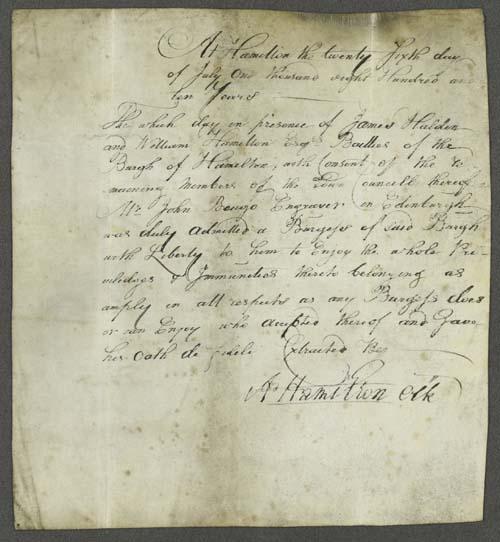 At Hamilton the twenty Sixth day
of July One thousand eight Hundred and
ten Years
The which day in presence of James Halden
and William Hamilton Esqrs Baillies of the
Burgh of Hamilton, with Consent of the re
maening Members of the Town Councill thereof
Mr John Beugo Engraver in Edinburgh
was duly Admitted a Burgess of said Burgh
with Liberty to him to Enjoy the whole Pri
viledges & Immunities thereto belonging as
amply in all respects as any Burgess does
or can Enjoy who accepted thereof and Gave
his Oath de fideli Extracted By
Ar Hamilton Clk